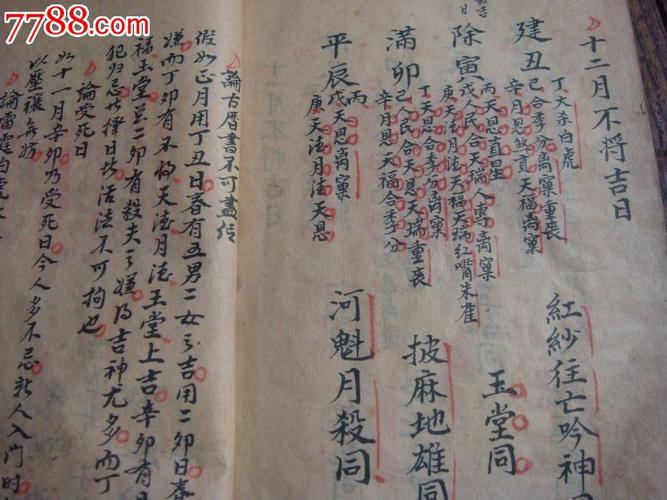 7788.com
十二月不将吉日
建丑
丁大吞白虎
己合季分离窠重丧
辛月恩 天福离窠
红纱往亡吟神
除寅
丙天恩直星
戊人民合天瑞人專离窠
庚天法月法天福天瑞红嘴朱雀
玉堂同
满卯
丁天恩合季分离窠
己人民合天恩天瑞重丧
辛月恩天福合季分
披麻地雄同
平辰
丙
戊天恩离窠
庚天法月法天恩
河魁月殺同
論古曆書不可盡信
假如正月用丁丑日春有五男二女之吉用二卯日春
嫌而丁卯有不将天法月法玉堂上吉辛卯有日
福玉堂 二卯有殺夫之嫌乃吉神尤多而丁
犯归忌 择日 活法不可拘也
論受死日
如十一月辛卯乃受死日今人多不忌新人入門时
以壓禳 妨
論雷霆白虎